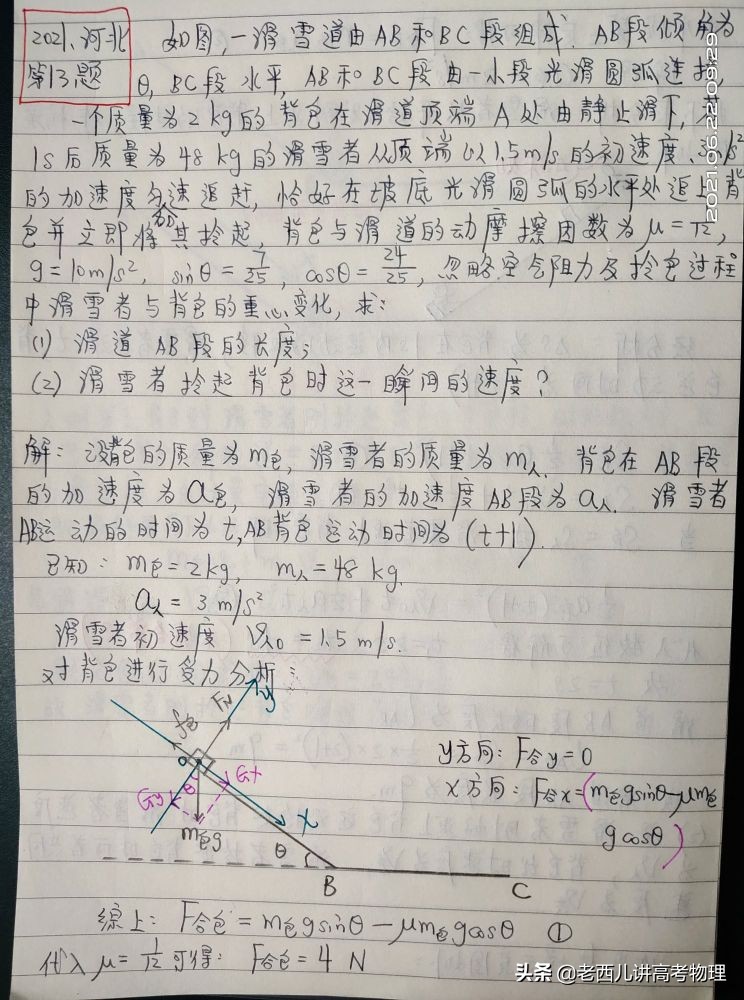 2021.河北
第13题
如图,一滑雪道由AB和BC段组成.AB段倾角为
θ,BC段水平,AB和BC段由一小段光滑圆弧连接,
一个质量为2kg的背包在滑道顶端A处由静止滑下,若
1s后质量为48kg的滑雪者从顶端以1.5m/s的初速度、3m/s²
的加速度匀加速追赶,恰好在坡底光滑圆弧的水平处追上背
包并立即将其拎起,背包与滑道的动摩擦因数为μ=1/12,
g=10m/s²,sinθ=7/25,cosθ=24/25,忽略空气阻力及拎包过程
中滑雪者与背包的重心变化,求:
(1)滑道AB段的长度;
(2)滑雪者拎起背包时这一瞬间的速度?
解:设背包的质量为m包,滑雪者的质量为m人.背包在AB段
的加速度为a包,滑雪者的加速度AB段为a人.滑雪者
AB运动的时间为t,AB背包运动时间为(t+1).
已知:m包=2kg,m人=48kg.
a人=3m/s²
滑雪者初速度 V人0=1.5m/s.
对背包进行受力分析:
y
FN
f包
o
θ
Gx
Gy
m包g
x
θ
B
C
y方向:F合y=0
x方向:F合x=(m包gsinθ-μm包
gcosθ)
综上:F合包=m包gsinθ-μm包gcosθ ①
代入μ=1/12可得:F合包=4N
头条@老西儿讲高考物理